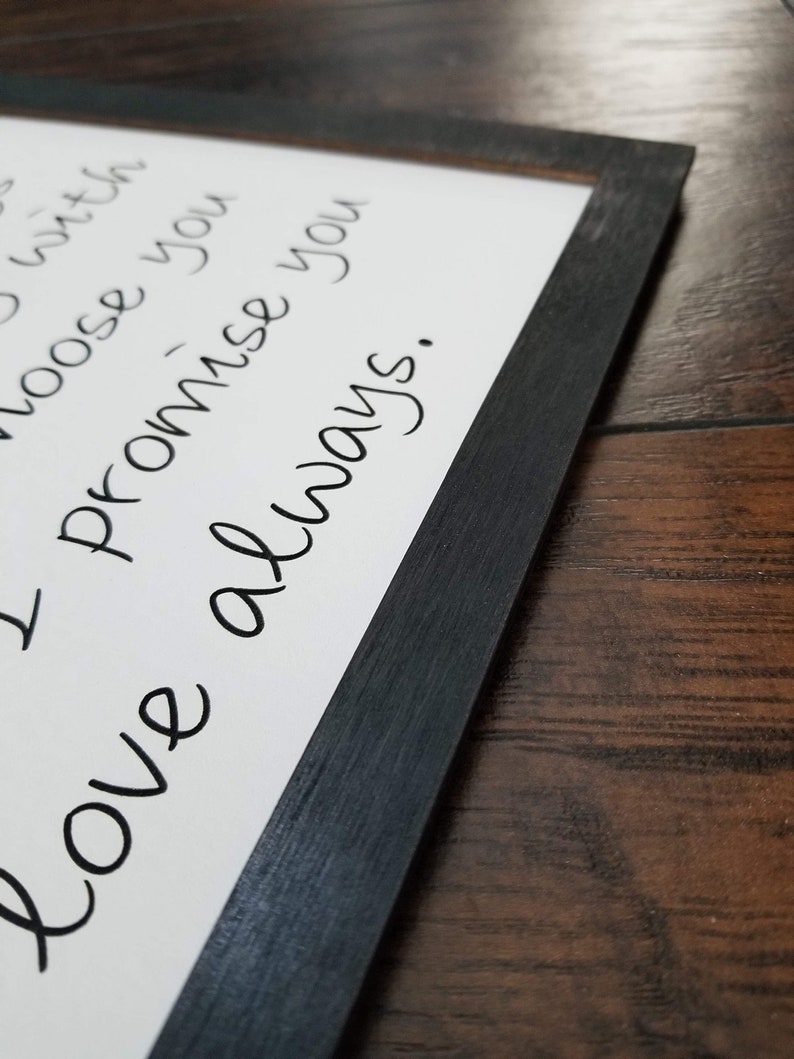 with
hoose you
I promise you
love always.